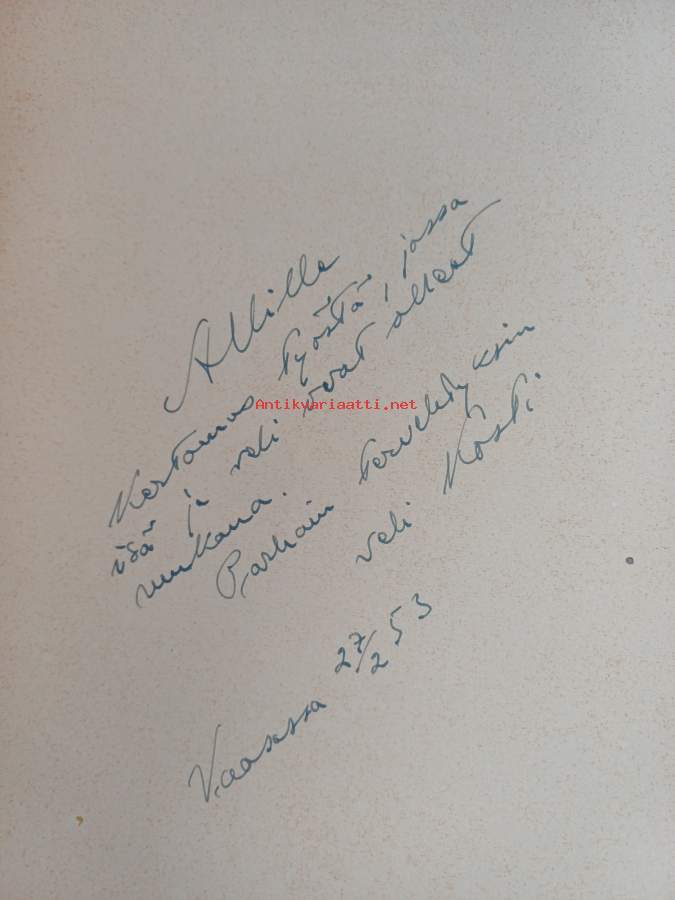 Allille
Kertomus työstä, jossa
isä ja veli ovat olleet
mukana.
Parhain tervehdyksin
veli Kösti
Vaasassa 27/2 53
Antikvariaatti.net